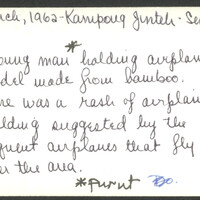 ch, 1962-Kampong Jinteh-Se
*
oung man holding airplan
del made from bamboo.
ne was a rash of airplan
lding suggested by the
quent airplanes that fly
er the area.
*Punut Bo.